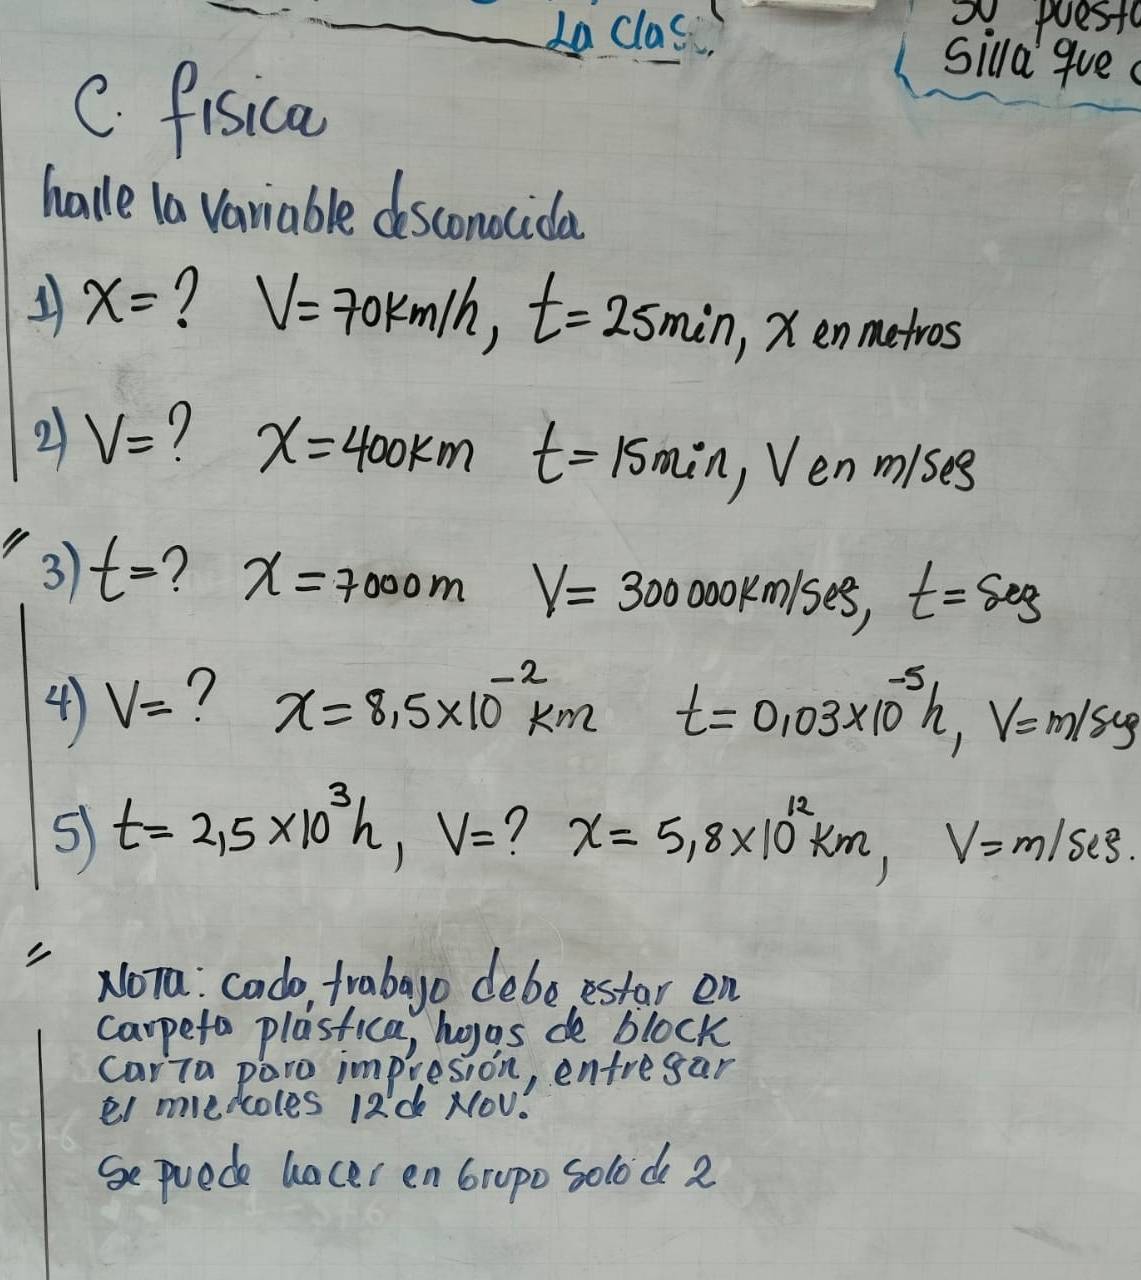 La Clas
su puesto
Silla que
C. física
halle la variable desconocida
1) x=? V=70km/h, t=25min, x en metros
2) V=? x=400km t=15min, V en m/seg
3) t=? x=7000m V=300000km/seg, t=seg
4) V=? x=8,5x10⁻² km t=0,03x10⁻⁵h, V=m/seg
5) t=2,5x10³h, V=? x=5,8x10¹²km, V=m/seg.
NOTA: cada, trabajo debe estar en
carpeta plástica, hojas de block
carta para impresión, entregar
el miercoles 12 de Nov.
Se puede hacer en Grupo Solo de 2